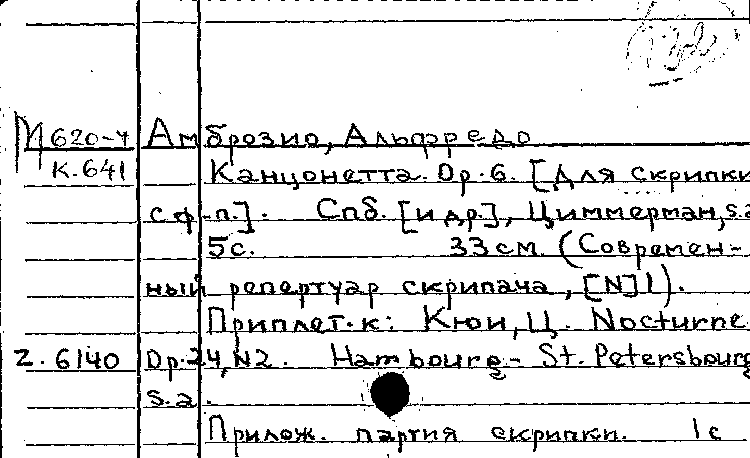 М620-4 Амброзио, Альфредо
К.641 Канцонетта. Op.6. [Для скрипки
с ф-п.]. Спб. [и др.], Циммерман, s.a
5с. 33см. (Современ-
ный репертуар скрипача, [N]1).
Приплет. к: Кюи, Ц. Nocturne
2.6140 Op.24, N2. Hambourg - St. Petersbourg
s.a.
Прилож. партия скрипки. 1с